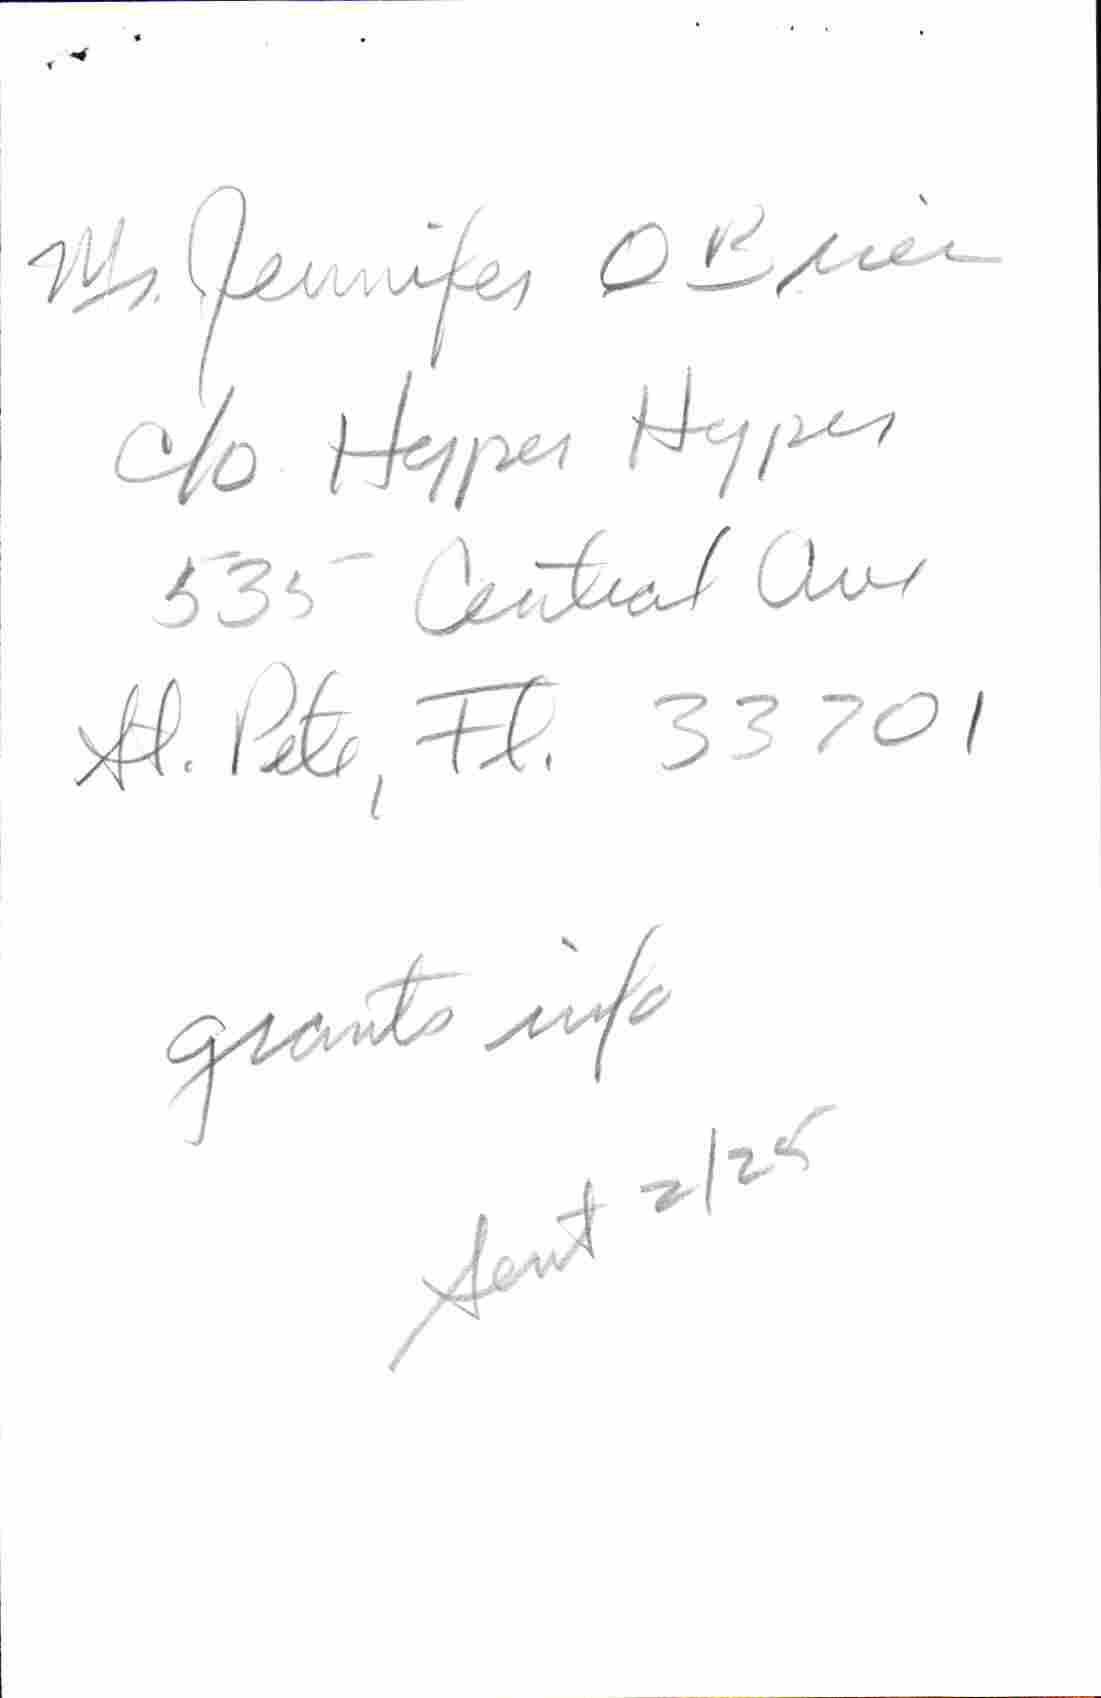 Ms. Jennifer O Brien
c/o Hyper Hyper
535 Central Ave
St. Pete, Fl. 33701
grants info
Sent 2/25